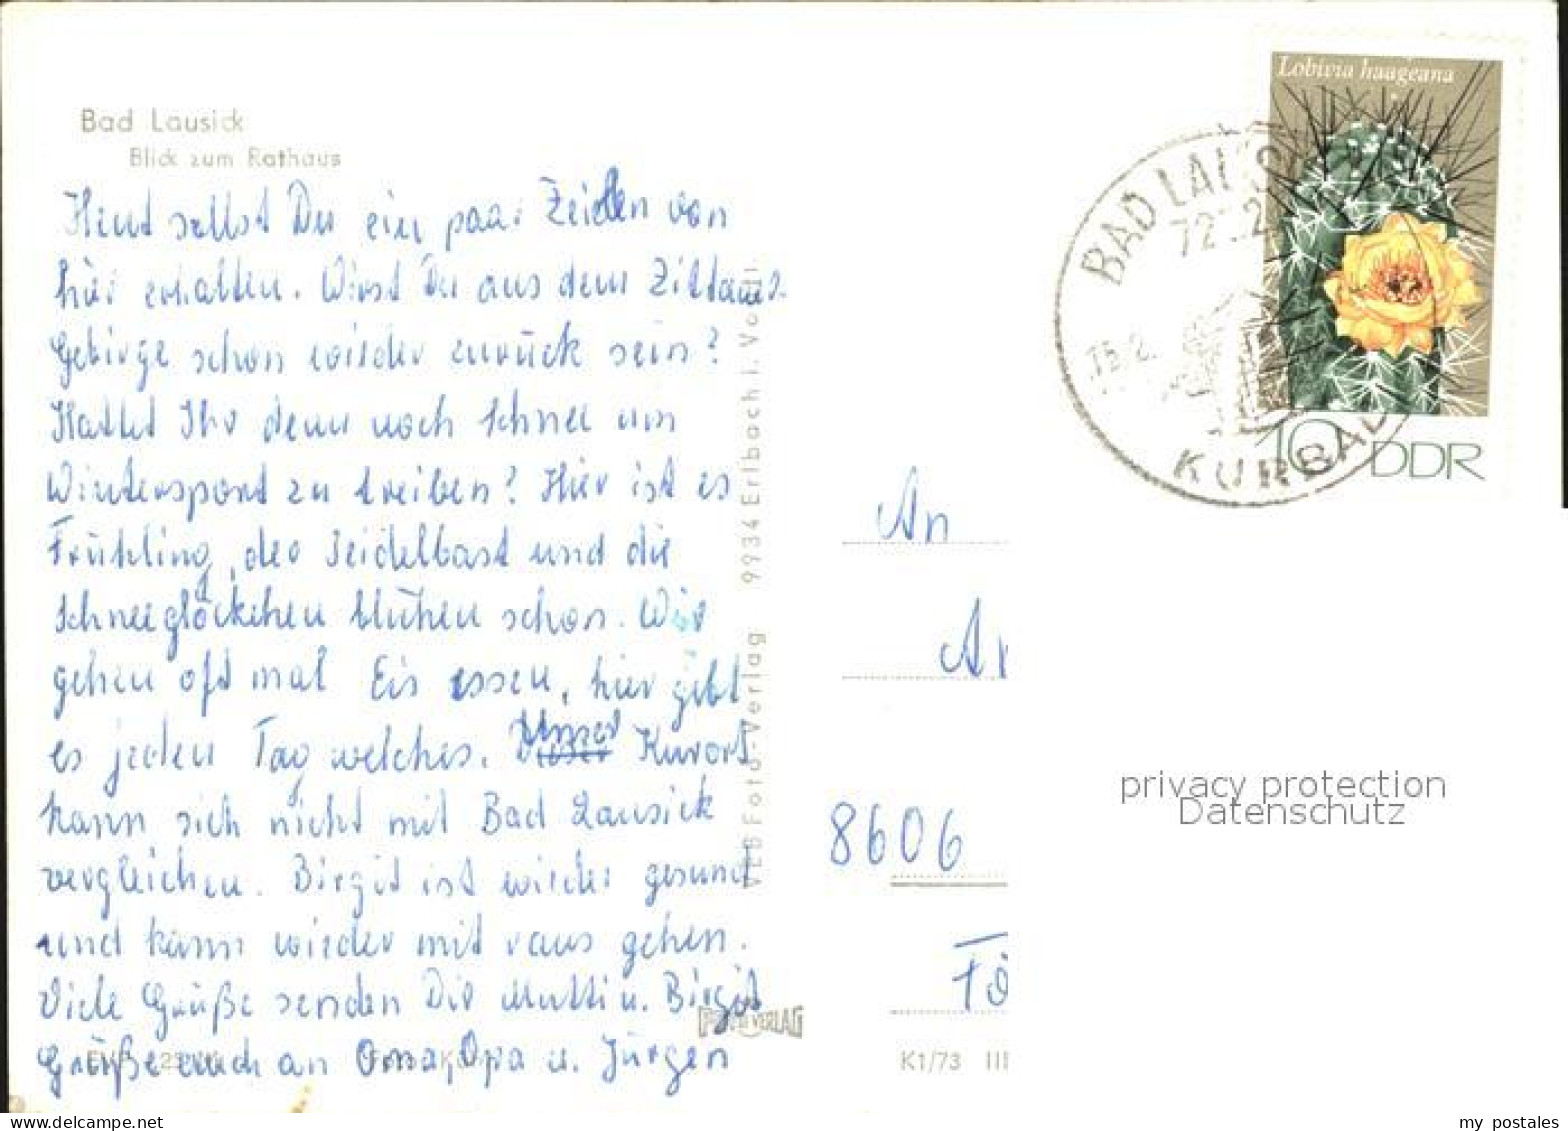 Bad Lausick
Blick zum Rathaus
Heut sollst Du ein paar Zeilen von
hier erhalten. Wirst Du aus dem Zittauer-
Gebirge schon wieder zurück sein?
Hattet Ihr denn noch Schnee um
Wintersport zu treiben? Hier ist es
Frühling, der Seidelbast und die
Schneeglöckchen blühen schon. Wir
gehen oft mal Eis essen, hier gibt
es jeden Tag welches. Unser Kurort
kann sich nicht mit Bad Lausick
vergleichen. Birgit ist wieder gesund
und kann wieder mit raus gehen.
Viele Grüße senden Dir Mutti u. Birgit
Grüße auch an Oma, Opa u. Jürgen
VEB Foto-Verlag 9934 Erlbach i. Vogtl.
VERLAG
K1/73 III
An
8606
Lobivia haageana
10 DDR
BAD LAUSICK
72
KURBAD
privacy protection
Datenschutz
my_postales